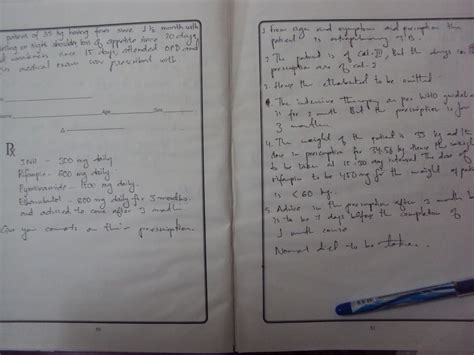 patient of 35 kg having fever since 1 ½ month with
on right shoulder, loss of appetite since 20 days,
and weakness since 15 days, attended OPD and
medical exam was prescribed with
Name
Age Sex
Δ
Rx
INH - 300 mg daily
Rifampin - 600 mg daily
Pyrazinamide - 1500 mg daily
Ethambutol - 800 mg daily for 3 months.
and advised to come after 3 month
Give your comments on this prescription.
1. From sign and symptoms and prescription the
patient is T.B.
2. The patient is of Cat-III, But the drugs in the
prescription are of cat-2
3. Hence the ethambutol to be omitted
4. The intensive therapy as per WHO guideline
is for 2 month. But the prescription is for
3 months
4. The weight of the patient is 35 kg and the
dose in prescription for the weight
to be taken at interval The dose of
Rifampin to be 450 mg for the weight of patient
is < 60 kg.
5. Advice in the prescription after 3 month
is to be 7 days before the completion of
month course
Normal diet to be taken.